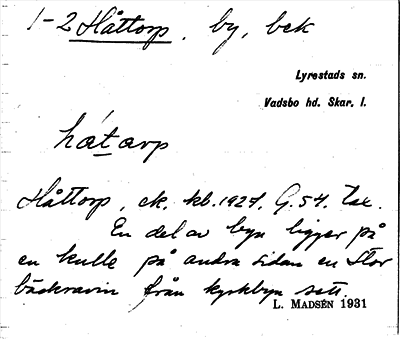 1-2 Håttorp, by, bek
Lyrestads sn.
Vadsbo hd. Skar. l.
hátarp
Håttorp, ek. kb. 1927, G. 54. Tax.
En del av byn ligger på
en kulle på andra sidan en stor
bäckravin från kyrkbyn sett.
L. MADSÉN 1931